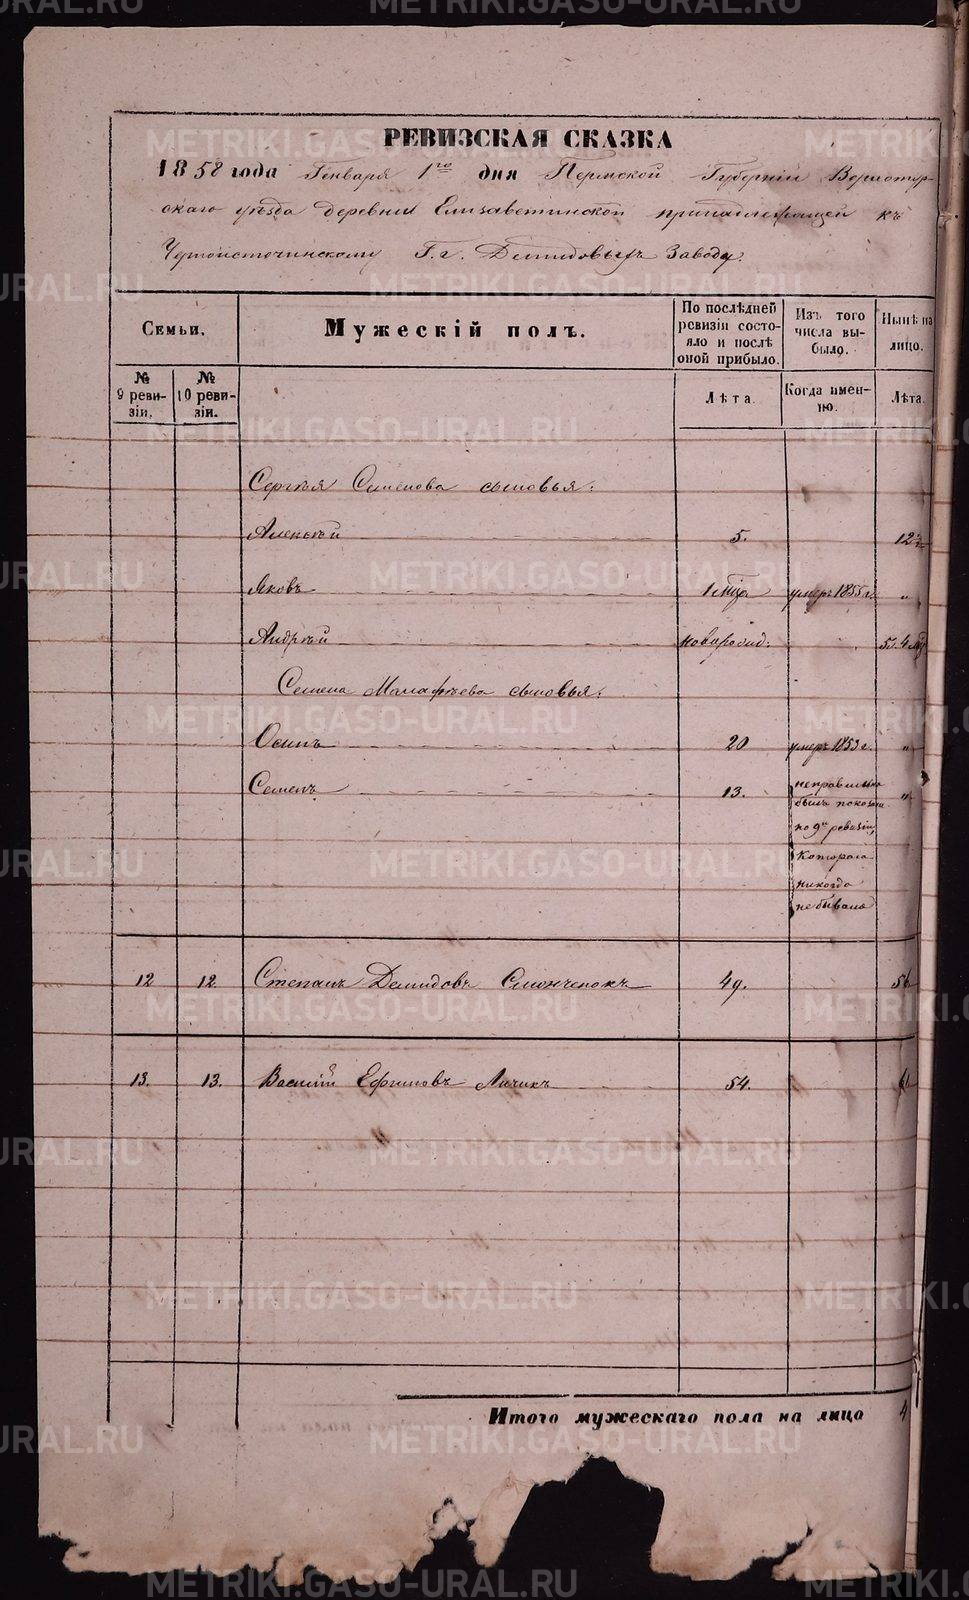 РЕВИЗСКАЯ СКАЗКА
1858 года Генваря 1го дня Пермской Губернiи Верхотур-
скаго уѣзда деревни Елизаветинской принадлежащей къ
Черноисточинскому Г.г. Демидовыхъ Заводу.
Семьи.
Мужескiй полъ.
По послѣдней ревизiи состо-
яло и послѣ оной прибыло.
Изъ того числа вы-
было.
Нынѣ на лицо.
№ 9 реви-
зiи.
№ 10 реви-
зiи.
Лѣта.
Когда имен-
но.
Лѣта.
Сергѣя Семенова сыновья:
Алексѣй 5. 12 1/2
Яковъ 1 мѣца умеръ 1855 г. „
Андрѣй новорожд: 5. 4 мѣ
Семена Манафѣева сыновья:
Осипъ 20 умеръ 1853 г. „
Семенъ 13. неправильно „
былъ показанъ
по 9й ревизiи,
котораго
никогда
не бывало
12 12. Степанъ Демидовъ 49. 56
13. 13. Василiй Ефимовъ 54. 61
Итого мужескаго пола на лицо 4
METRIKI.GASO-URAL.RU